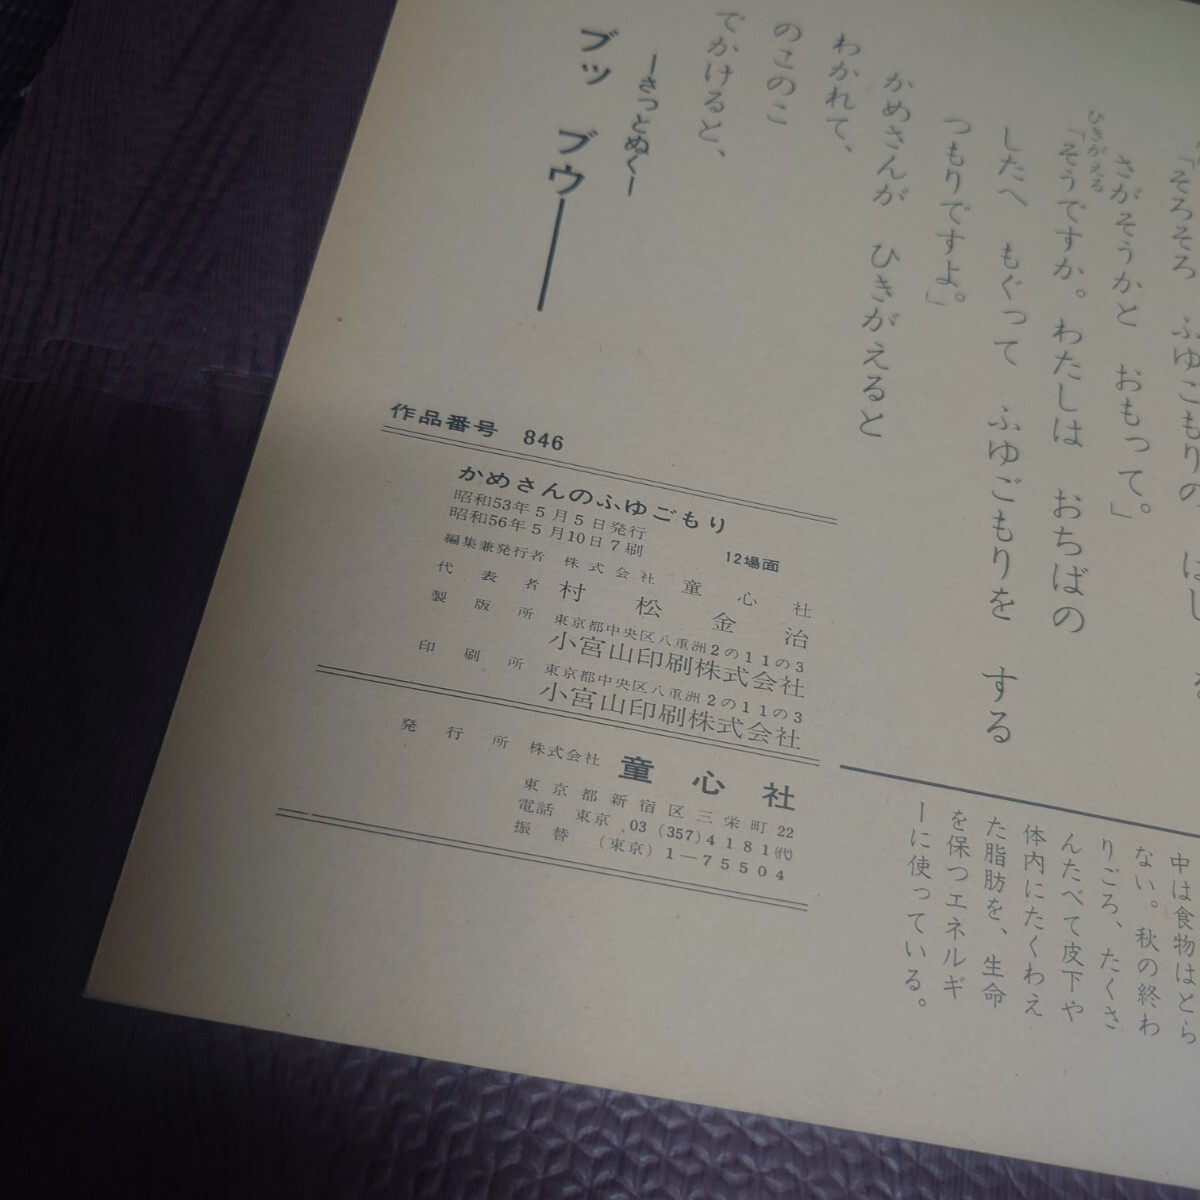 「そろそろ ふゆごもりの
さがそうかと おもって。」
ひきがえる
「そうですか。わたしは おちばの
したへ もぐって ふゆごもりを する
つもりですよ。」
かめさんが ひきがえると
わかれて、
のこのこ
でかけると、
ーさっとぬくー
ブッ ブウ──
作品番号 846
かめさんのふゆごもり
昭和53年5月5日発行
昭和56年5月10日7刷
12場面
編集兼発行者 株式会社 童心社
代表者 村松金治
製版所 東京都中央区八重洲2の11の3
小宮山印刷株式会社
印刷所 東京都中央区八重洲2の11の3
小宮山印刷株式会社
発行所 株式会社 童心社
東京都新宿区三栄町22
電話 東京 03 (357) 4181(代)
振替 (東京) 1-75504
中は食物はとら
ない。秋の終わ
りごろ、たくさ
んたべて皮下や
体内にたくわえ
た脂肪を、生命
を保つエネルギ
ーに使っている。